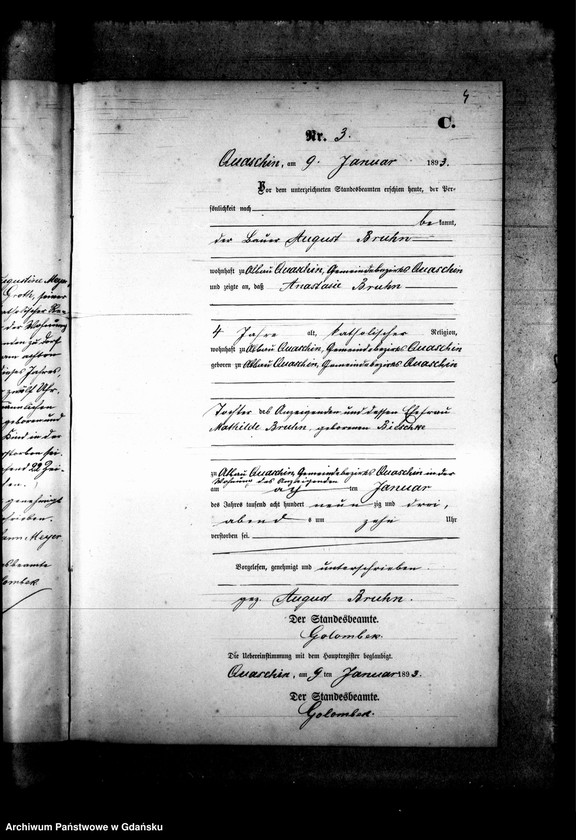 4
C.
Nr. 3.
Quaschin, am 9. Januar 1893.
Vor dem unterzeichneten Standesbeamten erschien heute, der Per-
sönlichkeit nach
be kannt,
der Bauer August Bruhn
wohnhaft zu Altbau Quaschin, Gemeindebezirks Quaschin
und zeigte an, daß Anastasie Bruhn
4 Jahre alt, katholischer Religion,
wohnhaft zu Abbau Quaschin, Gemeindebezirks Quaschin
geboren zu Abbau Quaschin, Gemeindebezirks Quaschin
Tochter des Anzeigenden und dessen Ehefrau
Mathilde Bruhn, geborenen
zu Abbau Quaschin Gemeindebezirks Quaschin in der
Wohnung des Anzeigenden
am ten Januar
des Jahres tausend acht hundert neun zig und drei,
abend s um zehn Uhr
verstorben sei.
Vorgelesen, genehmigt und unterschrieben.
gez. August Bruhn.
Der Standesbeamte.
Golombek.
Die Uebereinstimmung mit dem Hauptregister beglaubigt.
Quaschin, am 9 ten Januar 1893.
Der Standesbeamte.
Golombek.
Augustine Meyer
Groth, seiner
der Wohnung
am achten
dieses Jahres
Uhr
geboren und
Kind in der
verstorben sei.
22 Zei-
genehmigt
Meyer
Golombek
Archiwum Państwowe w Gdańsku